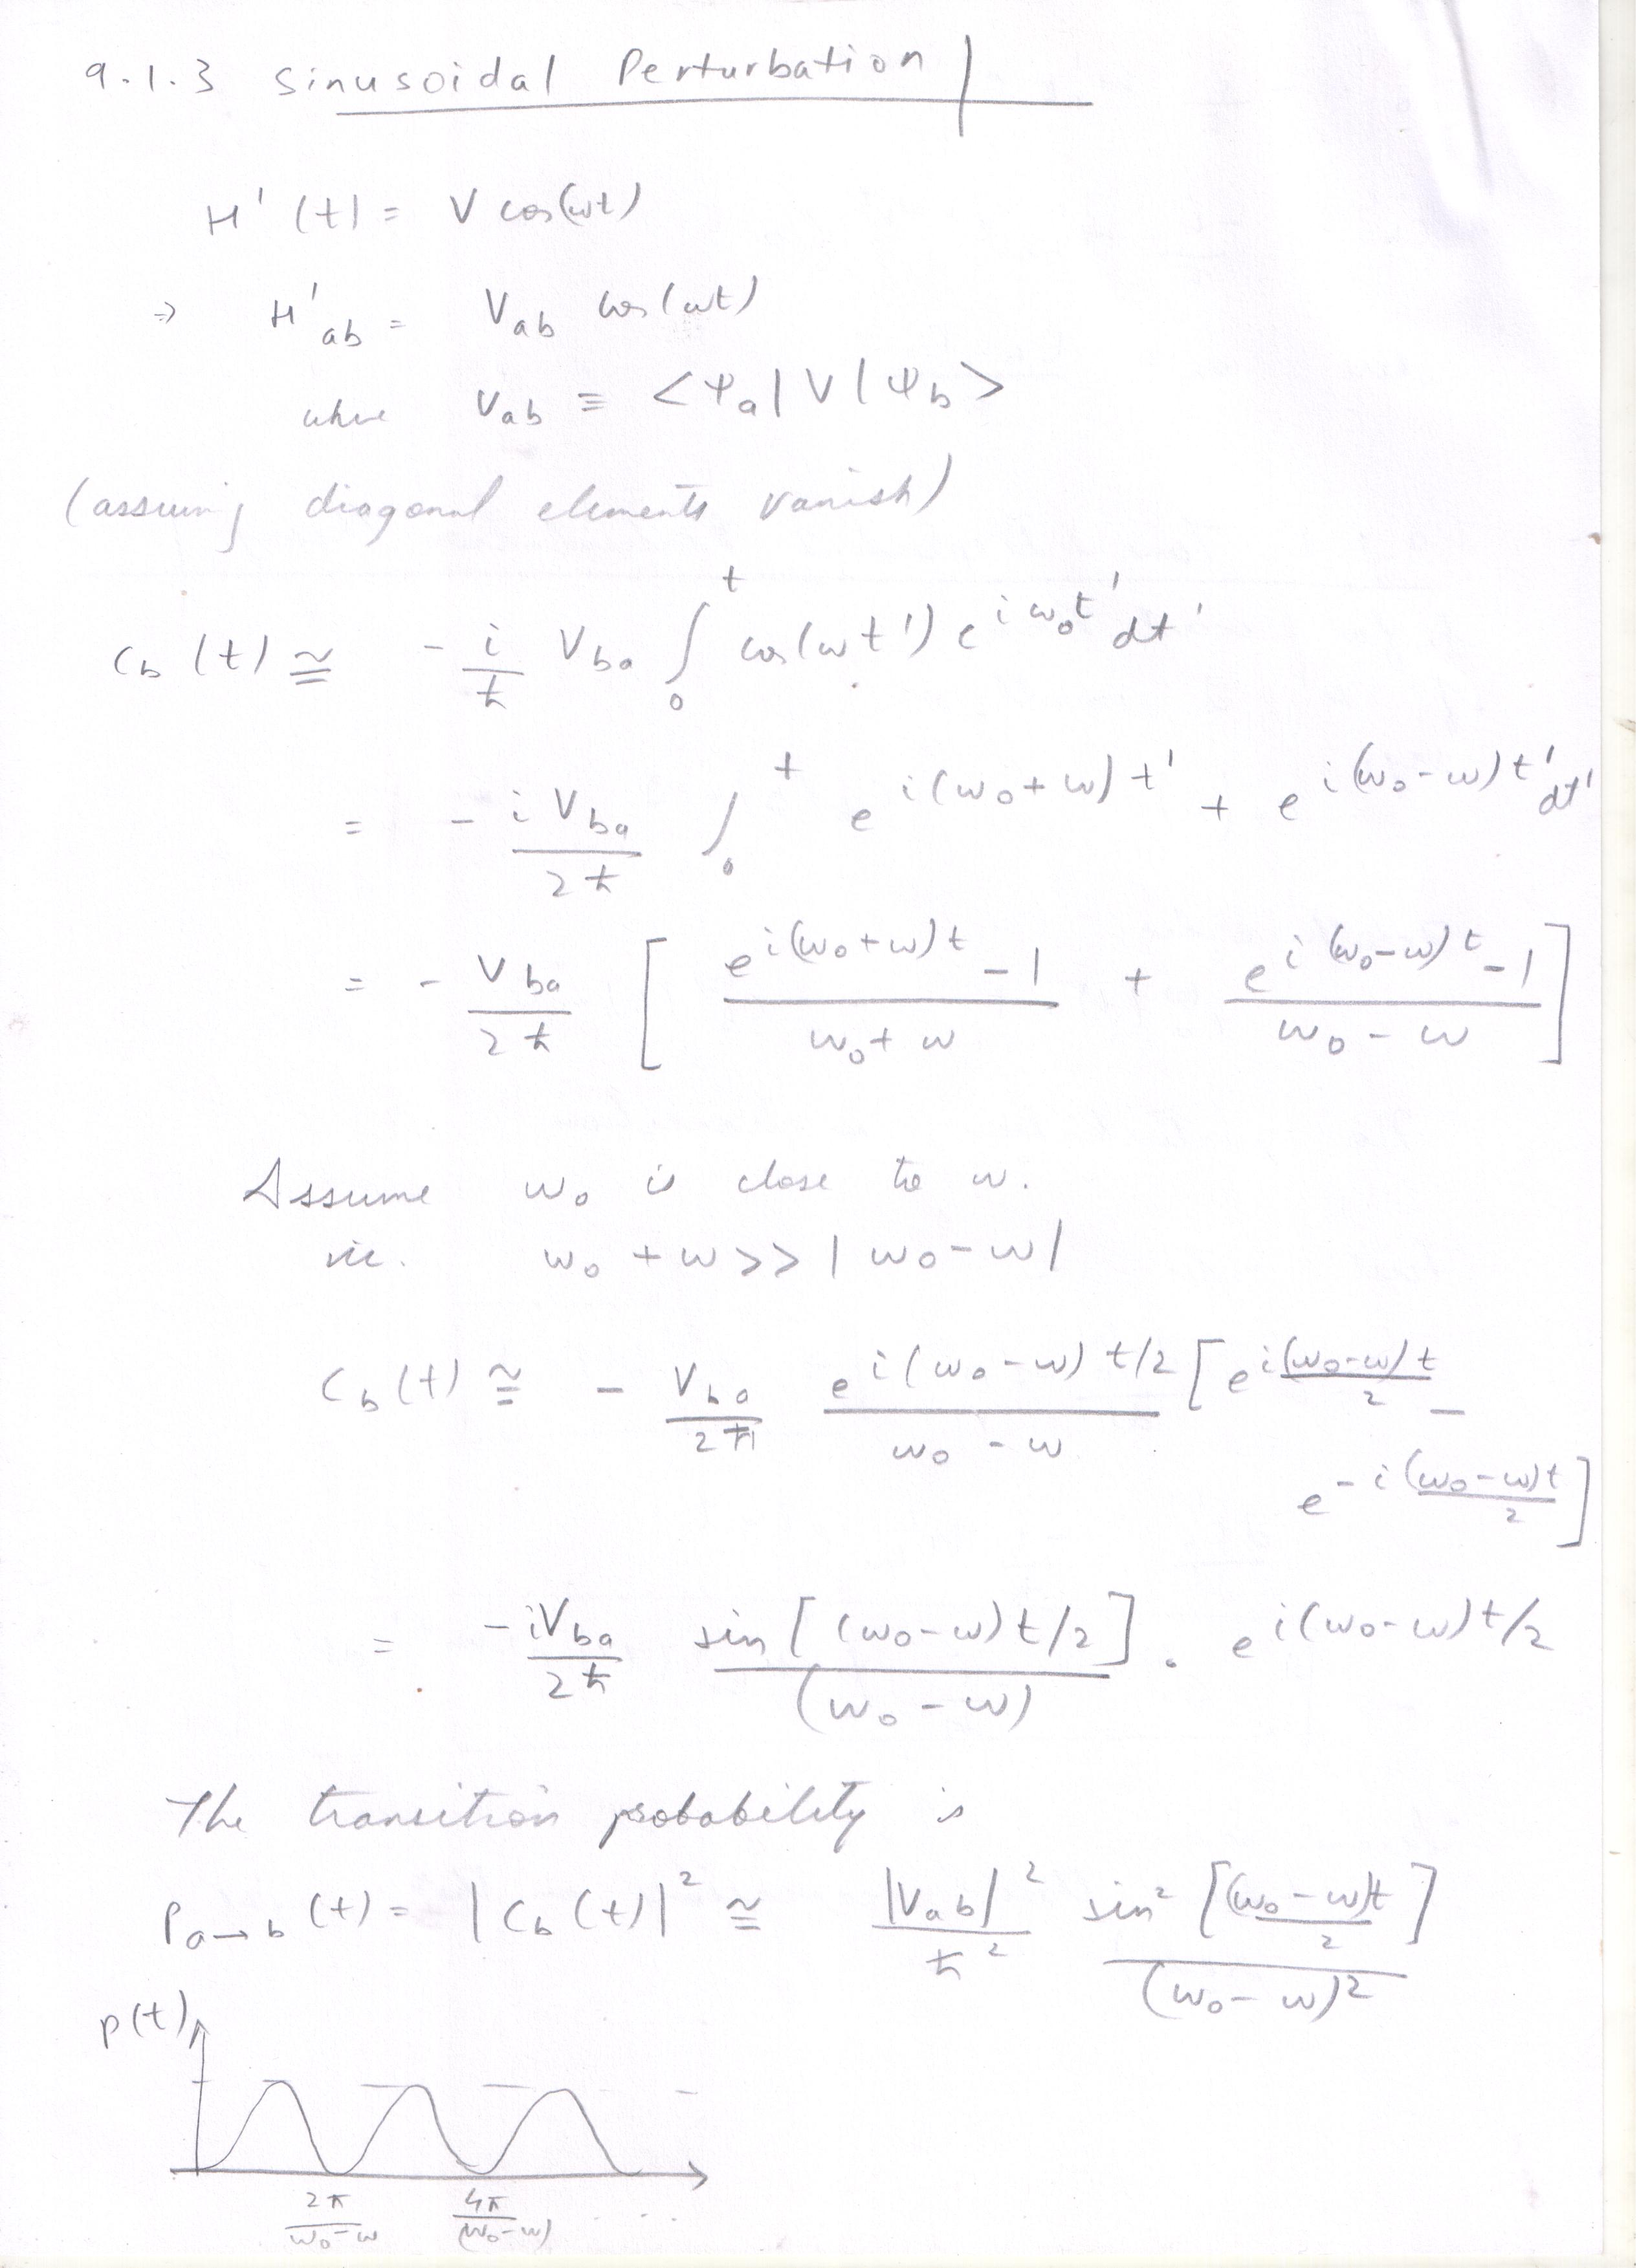 9.1.3 Sinusoidal Perturbation
H'(t) = V cos(ωt)
⇒ H'ab = Vab cos(ωt)
where Vab ≡ <Ψa|V|Ψb>
(assuming diagonal elements vanish)
Cb(t) ≅ - i/ħ Vba ∫₀ᵗ cos(ωt') e^{iω₀t'} dt'
= - iVba/2ħ ∫₀ᵗ e^{i(ω₀+ω)t'} + e^{i(ω₀-ω)t'} dt'
= - Vba/2ħ [ (e^{i(ω₀+ω)t} - 1)/(ω₀+ω) + (e^{i(ω₀-ω)t} - 1)/(ω₀-ω) ]
Assume ω₀ is close to ω.
ie. ω₀ + ω >> |ω₀-ω|
Cb(t) ≅ - Vba/2ħ e^{i(ω₀-ω)t/2}/(ω₀-ω) [ e^{i(ω₀-ω)t/2} -
e^{-i(ω₀-ω)t/2} ]
= -iVba/2ħ sin[(ω₀-ω)t/2]/(ω₀-ω) . e^{i(ω₀-ω)t/2}
The transition probability is
Pa→b(t) = |Cb(t)|² ≅ |Vab|²/ħ² sin²[(ω₀-ω)t/2]/(ω₀-ω)²
p(t)
2π/(ω₀-ω) 4π/(ω₀-ω) ...